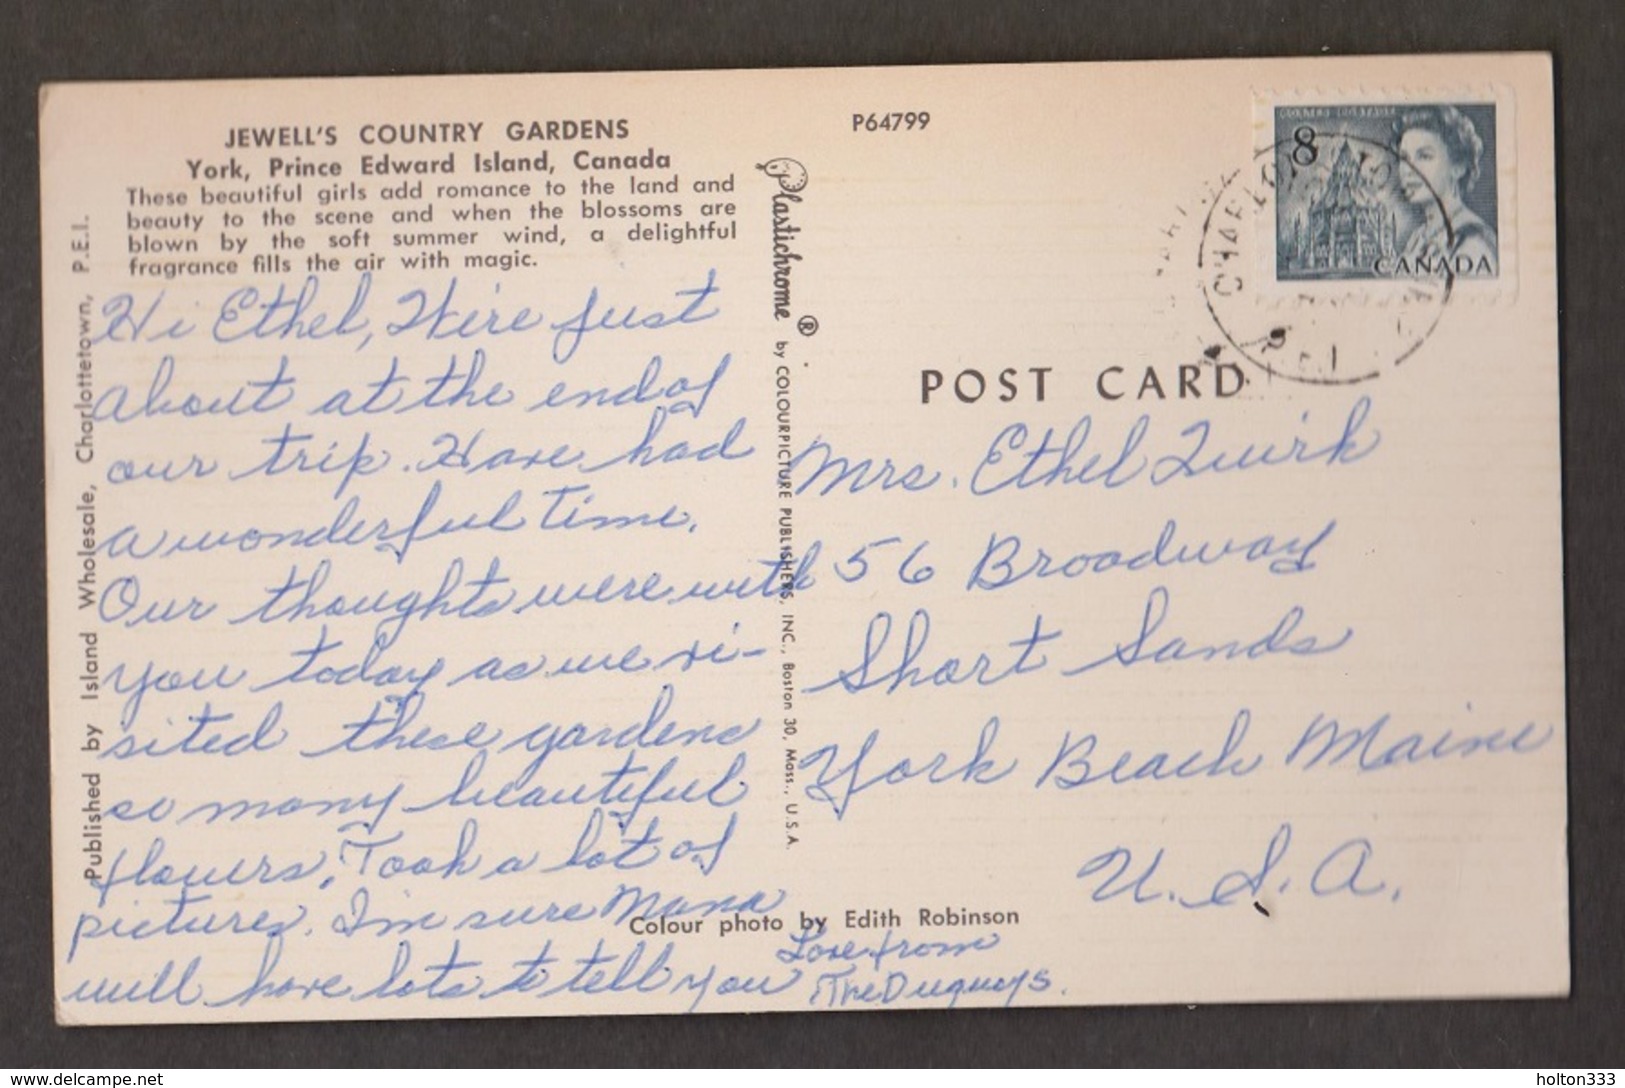 JEWELL'S COUNTRY GARDENS
York, Prince Edward Island, Canada
These beautiful girls add romance to the land and
beauty to the scene and when the blossoms are
blown by the soft summer wind, a delightful
fragrance fills the air with magic.
Hi Ethel, We're just
about at the end of
our trip. Have had
a wonderful time.
Our thoughts were with
you today as we vi-
sited these gardens
so many beautiful
flowers. Took a lot of
pictures. I'm sure Mana
will have lots to tell you
Love from
The Duguays.
Published by Island Wholesale, Charlottetown, P.E.I.
Plastichrome ® by COLOURPICTURE PUBLISHERS, INC., Boston 30, Mass., U.S.A.
P64799
8
CANADA
POST CARD
Mrs. Ethel Quirk
56 Broadway
Short Sands
York Beach Maine
U.S.A.
Colour photo by Edith Robinson
holton333
delcampe.net